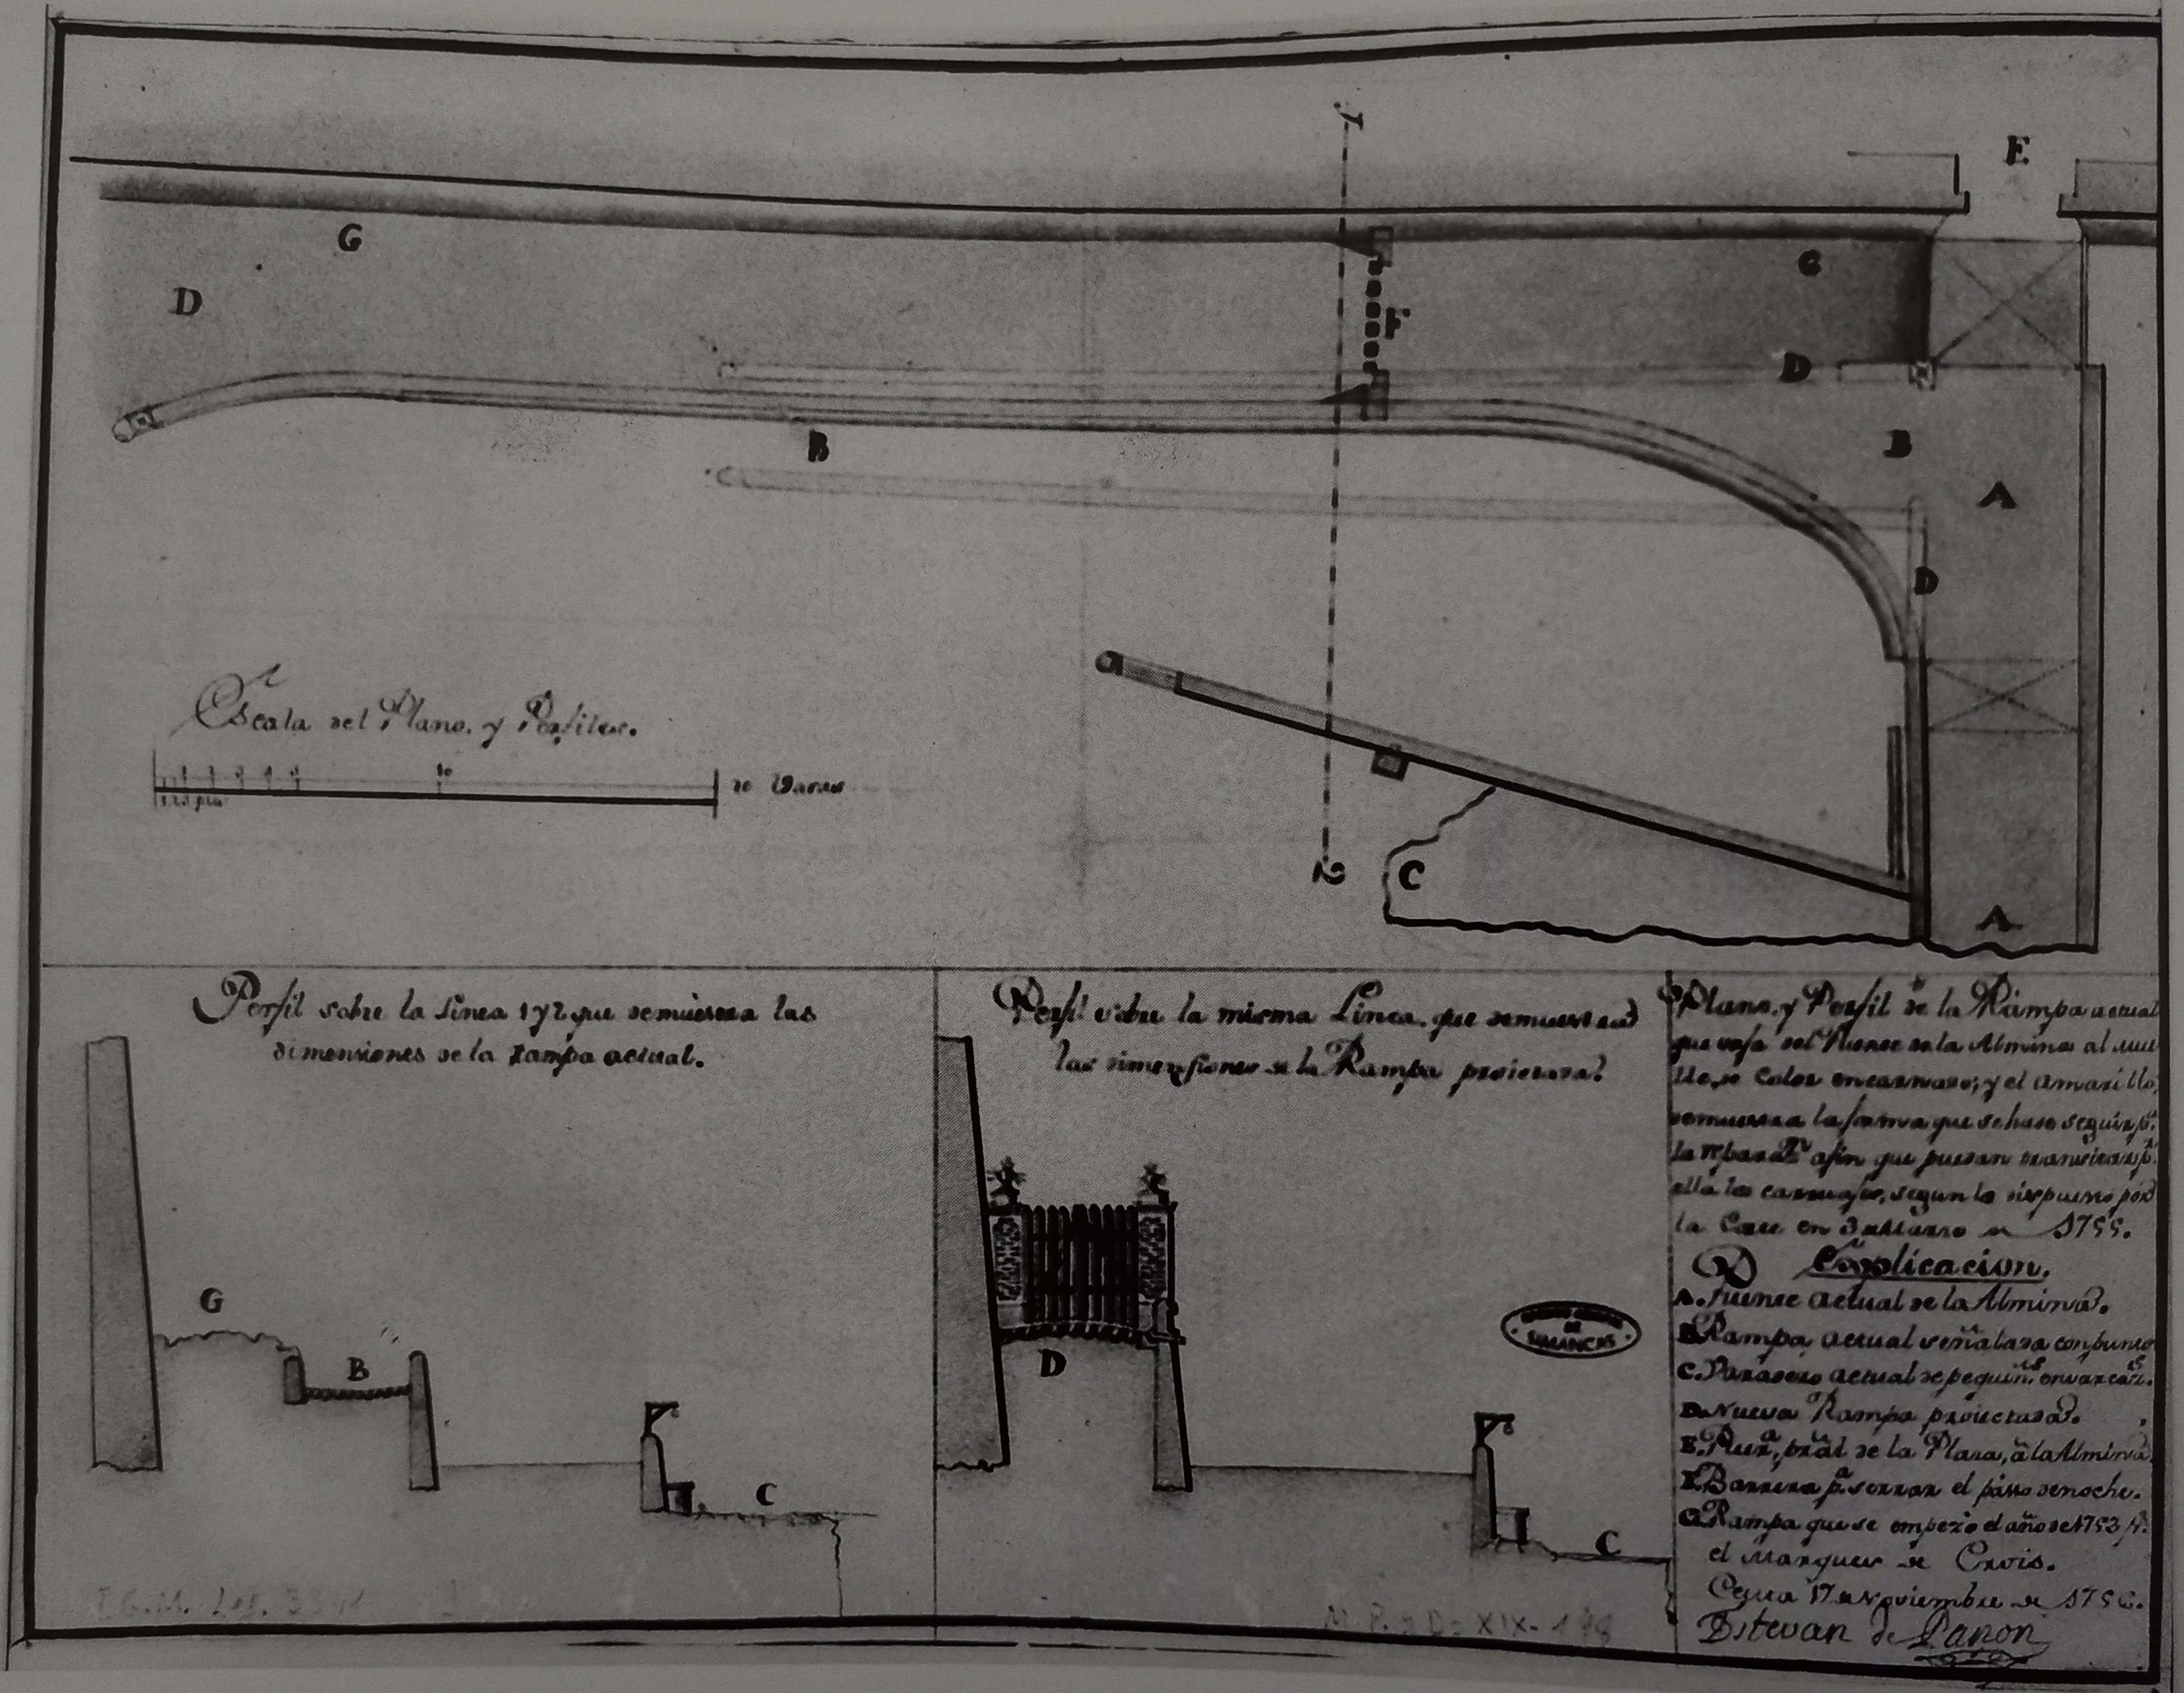 1
E
G
G
D
F
D
B
B
A
D
Escala del Plano, y Perfiles.
10
20 Varas
2
C
A
Perfil sobre la Linea 1 y 2 que demuestra las
dimensiones de la rampa actual.
G
B
C
Perfil sobre la misma Linea, que demuestra
las dimensiones de la Rampa proiectada.
D
C
SIMANCAS
Plano, y Perfil de la Rampa actual
que vaja del Puente de la Almina al mue
lle, de Color encarnado; y el amarillo,
demuestra la forma que se hade seguir pa.
afin que puedan transitar pr.
ella los carruajes, segun lo dispuesto por
la Corte en 3 de Marzo de 1755.
Explicacion.
A. Puente actual de la Almina.
B. Rampa actual señalada con puntos
C. Varadero actual de pequeñs. envarcas.
D. Nueva Rampa proiectada.
E. Puerta, pral de la Plaza, à la Almina
F. Barrera pa. serrar el passo denoche.
G. Rampa que se empezò el año de 1753 pr.
el Marques de Crois.
Ceuta 17 de Noviembre de 1756.
Estevan de Panon